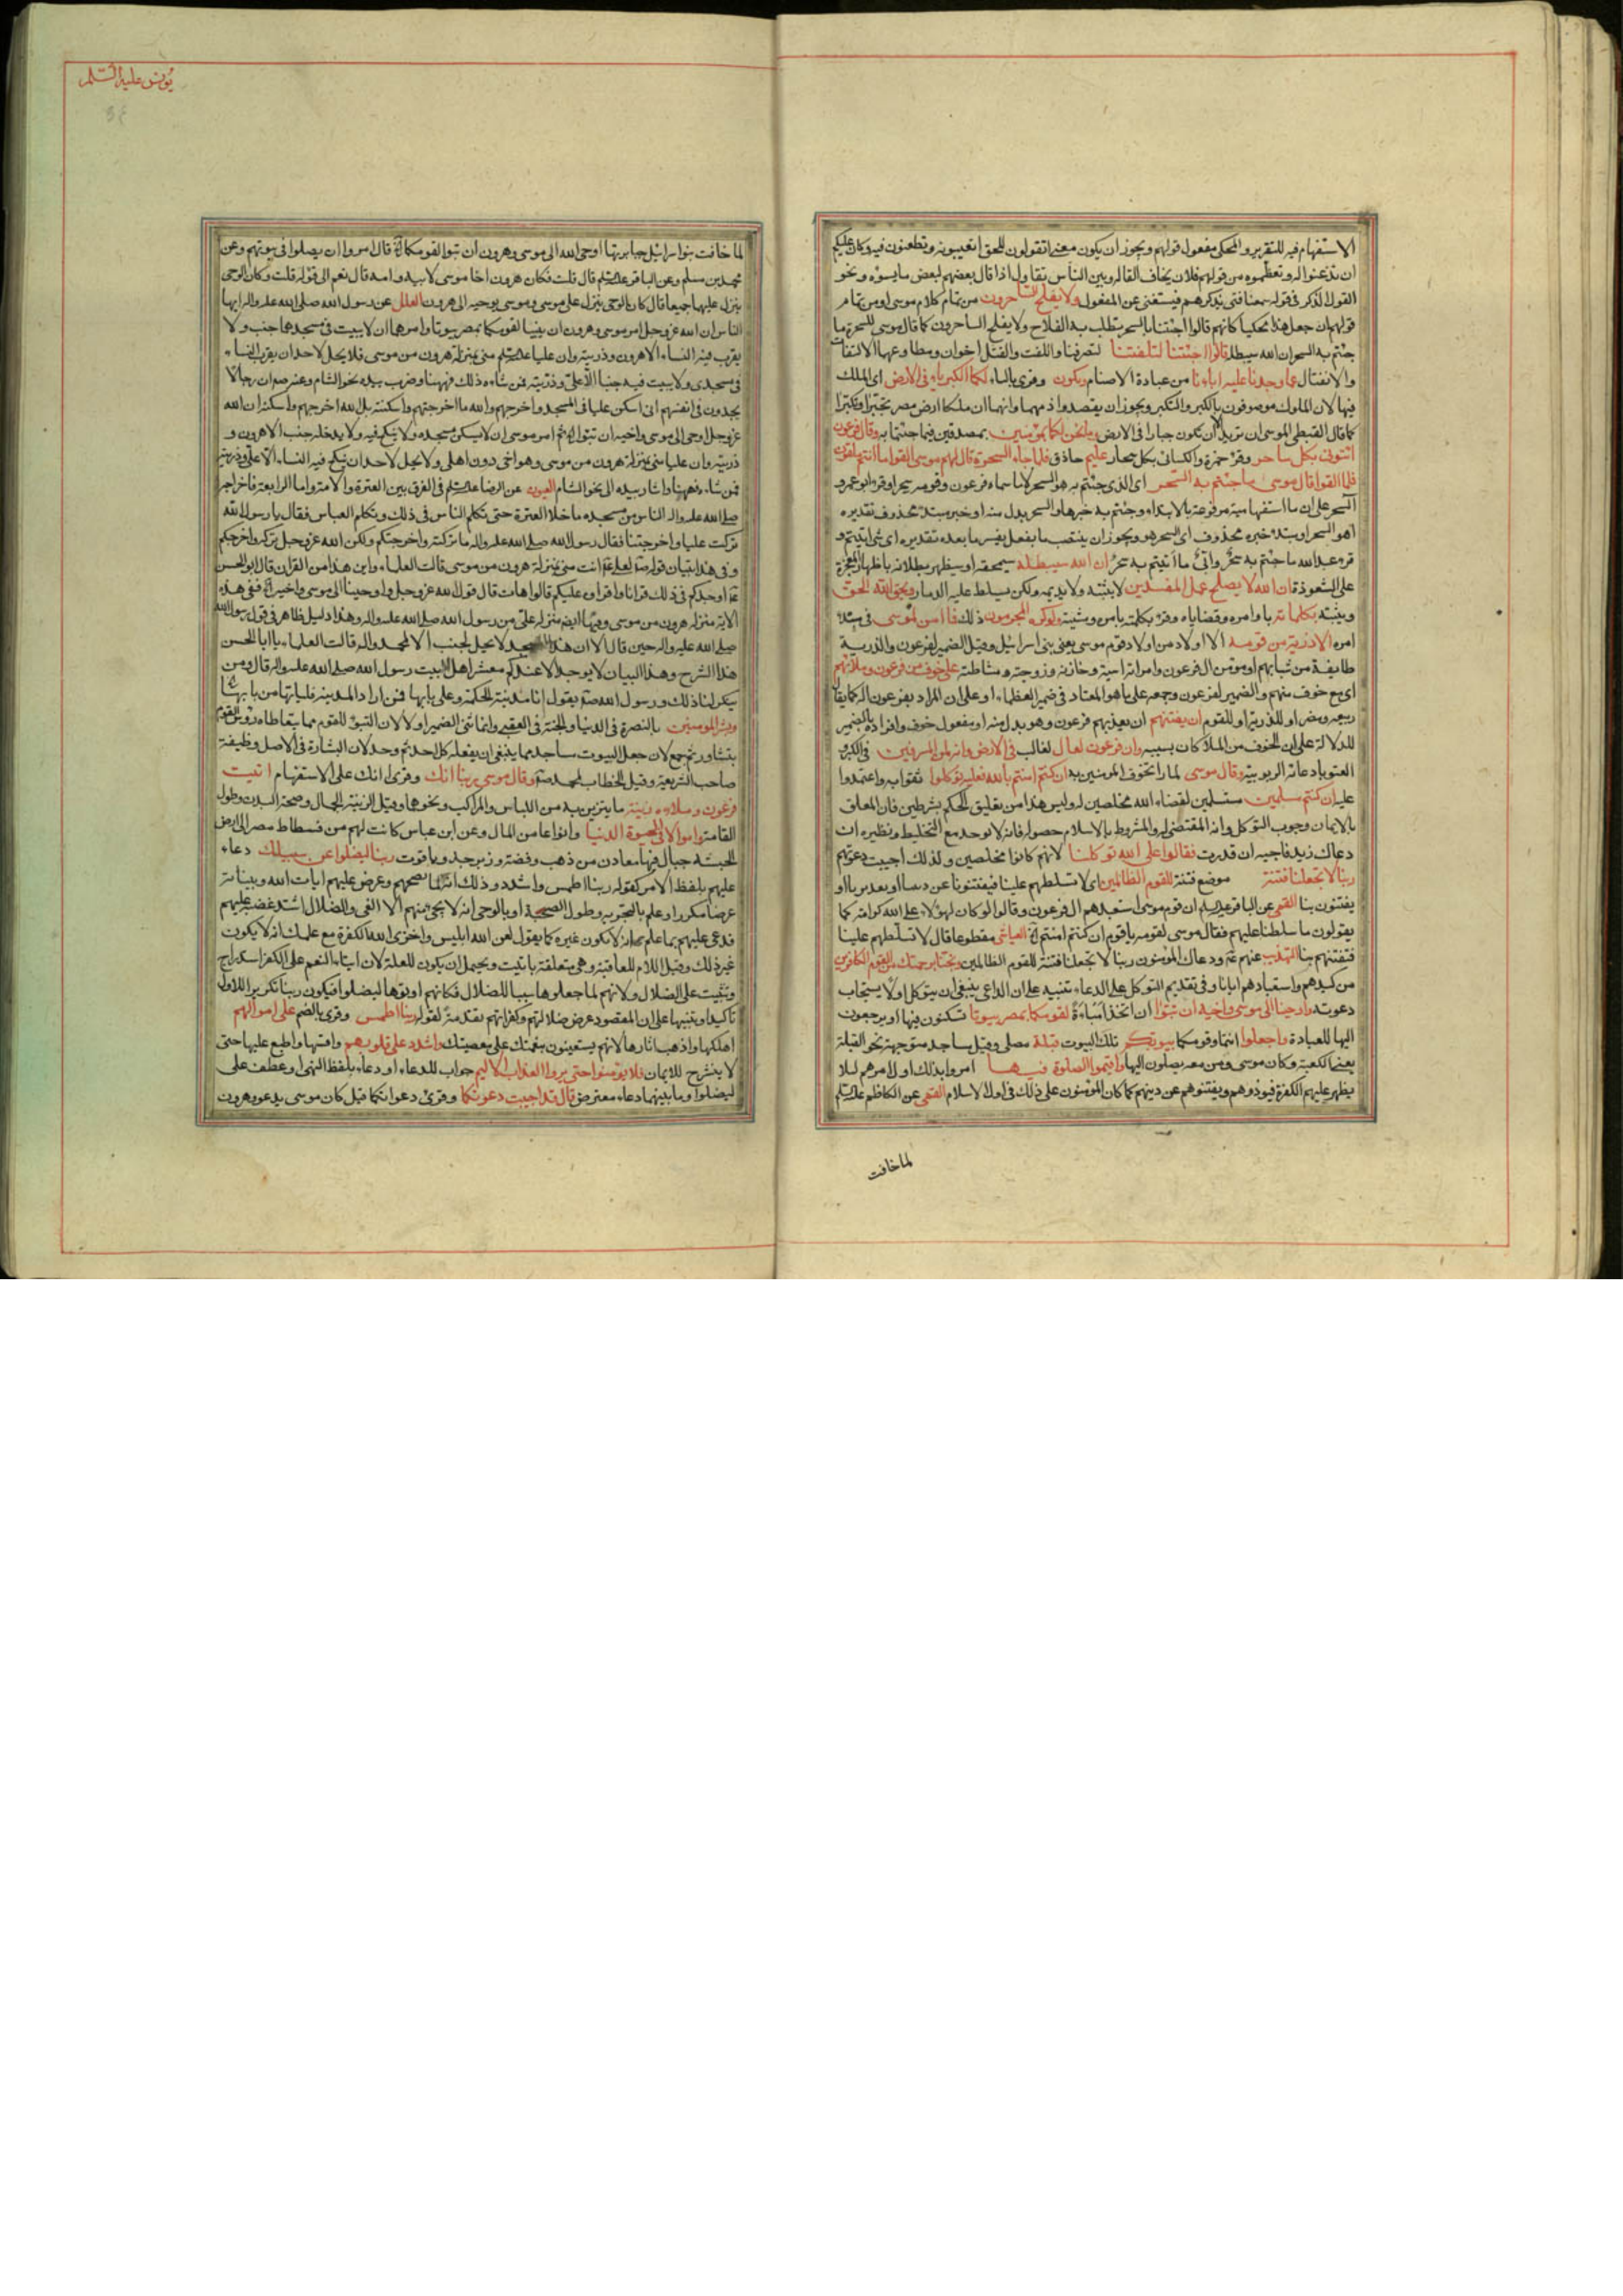 الاستفهام فيه للتقرير والمحكى مفعول قولهم ويجوز ان يكون معنى اتقولون للحق اتعيبونه وتطعنون فيه وكان عليكم
ان تذعنوا له وتعظموه من قولهم فلان يخاف القالة وبين الناس تقاول اذا قال بعضهم لبعض ما يسؤه ونحو
القول الذكر فى قوله سمعنا فتى يذكرهم فيستغنى عن المفعول ولا يفلح الساحرون من تمام كلام موسى او من تمام
قولهم ان جعل هذا محكيا كانهم قالوا اجئتنا بالسحر تطلب به الفلاح ولا يفلح الساحرون كما قال موسى للسحرة ما
جئتم به السحر ان الله سيبطله قالوا اجئتنا لتلفتنا لتصرفنا واللفت والفتل اخوان ومطاوعهما الالتفات
والانفتال عما وجدنا عليه اباءنا من عبادة الاصنام وتكون وقرى بالياء لكما الكبرياء فى الارض اى الملك
فيها لان الملوك موصوفون بالكبر والتكبر ويجوز ان يقصدوا ذمهما وانهما ان ملكا ارض مصر تجبرا وتكبرا
كما قال القبطى لموسى ان تريد الا ان تكون جبارا فى الارض وما نحن لكما بمؤمنين بمصدقين فيما جئتما به وقال فرعون
ائتونى بكل ساحر وقرئ حمزة والكسائى بكل سحار عليم حاذق فلما جاء السحرة قال لهم موسى القوا ما انتم ملقون
فلما القوا قال موسى ما جئتم به السحر اى الذى جئتم به هو السحر لا ما سماه فرعون وقومه سحرا وقرء ابو عمرو
آلسحر على ان ما استفهامية مرفوعة بالابتداء وجئتم به خبرها والسحر بدل منه او خبر مبتدء محذوف تقديره
اهو السحر او مبتدء خبره محذوف اى السحر هو ويجوز ان ينتصب ما بفعل يفسره ما بعده تقديره اى شئ اتيتم و
قرء عبدالله ما جئتم به سحر وابى ما أتيتم به سحر ان الله سيبطله سيمحقه او سيظهر بطلانه باظهار المعجزة
على الشعوذة ان الله لا يصلح عمل المفسدين لا يثبته ولا يديمه ولكن يسلط عليه الدمار ويحق الله الحق
ويثبته بكلماته باوامره وقضاياه وقرئ بكلمته بامره ومشيته ولو كره المجرمون ذلك فما امن لموسى فى مبتدء
امره الا ذرية من قومه الا اولاد من اولاد قوم موسى يعنى بنى اسرائيل وقيل الضمير لفرعون والذرية
طايفة من شبابهم او مؤمن ال فرعون وامراته اسية وخازنه وزوجته ومشاطته على خوف من فرعون وملائهم
اى مع خوف منهم والضمير لفرعون وجمعه على ما هو المعتاد فى ضمير العظماء او على ان المراد بفرعون اله كما يقال
ربيعه ومضر او للذرية او للقوم ان يفتنهم ان يعذبهم فرعون وهو بدل منه او مفعول خوف وافراده بالضمير
للدلالة على ان الخوف من الملأ كان بسببه وان فرعون لعال لغالب فى الارض وانه لمن المسرفين فى الكبر و
العتو بادعائه الربوبية وقال موسى لما راى تخوف المؤمنين به ان كنتم امنتم بالله فعليه توكلوا فثقوا به واعتمدوا
عليه ان كنتم مسلمين مستسلمين لقضاء الله مخلصين له وليس هذا من تعليق الحكم بشرطين فان المعلق
بالايمان وجوب التوكل وانه المقتضى له والمشروط بالاسلام حصوله فانه لا يوجد مع التخليط ونظيره ان
دعاك زيد فاجبه ان قدرت فقالوا على الله توكلنا لانهم كانوا مخلصين ولذلك اجيبت دعوتهم
ربنا لا تجعلنا فتنة موضع فتنة للقوم الظالمين اى لا تسلطهم علينا فيفتنونا عن ديننا او يعذبونا او
يفتنون بنا القمى عن الباقر عليه السلم ان قوم موسى استعبدهم ال فرعون وقالوا لو كان لهؤلاء على الله كرامة كما
يقولون ما سلطنا عليهم فقال موسى لقومه يا قوم ان كنتم امنتم العياشى مقطوعا قال لا تسلطهم علينا
فتفتنهم بنا التهذيب عنهم ودعاك المؤمنون ربنا لا تجعلنا فتنة للقوم الظالمين ونجنا برحمتك من القوم الكافرين
من كيدهم واستعبادهم ايانا وفى تقديم التوكل على الدعاء تنبيه على ان الداعى ينبغى ان يتوكل اولا ليستجاب
دعوته واوحينا الى موسى واخيه ان تبوا ان اتخذا مباءة لقومكما بمصر بيوتا تسكنون فيها او يرجعون
اليها للعبادة واجعلوا انتما وقومكما بيوتكم تلك البيوت قبلة مصلى وقيل مساجد متوجهة نحو القبلة
يعنى الكعبة وكان موسى ومن معه يصلون اليها واقيموا الصلوة فيها امروا بذلك اول امرهم لئلا
يظهر عليهم الكفرة فيؤذوهم ويفتنوهم عن دينهم كما كان المؤمنون على ذلك فى اول الاسلام القمى عن الكاظم عليه السلم
لما خافت
يونس عليه السلم
لما خافت بنوا اسرائيل جبابرتها اوحى الله الى موسى وهرون ان تبوا لقومكما قال امروا ان يصلوا فى بيوتهم وعن
محمد بن مسلم وعن الباقر عليه السلم قال قلت فكان هرون اخا موسى لابيه وامه قال نعم الى قوله قلت وكان الوحى
ينزل عليهما جميعا قال كان الوحى ينزل على موسى وموسى يوحيه الى هرون العلل عن رسول الله صلى الله عليه واله ايها
الناس ان الله عز وجل امر موسى وهرون ان يبنيا لقومكما بمصر بيوتا وامرهما ان لا يبيت فى مسجدهما جنب ولا
يقرب فيه النساء الا هرون وذريته وان عليا عليه السلم منى بمنزلة هرون من موسى فلا يحل لاحد ان يقرب النساء
فى مسجدى ولا يبيت فيه جنبا الا على وذريته فمن شاءه ذلك فههنا وضرب بيده نحو الشام وعنه ص ان رجالا
يجدون فى انفسهم انى اسكن عليا فى المسجد واخرجهم والله ما اخرجتهم واسكنته بل الله اخرجهم واسكنه ان الله
عز وجل اوحى الى موسى واخيه ان تبوا ثم امر موسى ان لا يسكن مسجده ولا ينكح فيه ولا يدخله جنب الا هرون و
ذريته وان عليا منى بمنزلة هرون من موسى وهو اخى دون اهلى ولا يحل لاحد ان ينكح فيه النساء الا على وذريته
فمن شاء فههنا واشار بيده الى نحو الشام العيون عن الرضا عليه السلم فى الفرق بين العترة والامة واما الرابعة فاخراجه
صلى الله عليه واله الناس من مسجده ما خلا العترة حتى تكلم الناس فى ذلك وتكلم العباس فقال يا رسول الله
تركت عليا واخرجتنا فقال رسول الله صلى الله عليه واله ما تركته واخرجتكم ولكن الله عز وجل تركه واخرجكم
وفى هذا تبيان قوله لعلى انت منى بمنزلة هرون من موسى قالت العلماء واين هذا من القران قال ابو الحسن
اوجدكم فى ذلك قرانا واقراه عليكم قالوا هات قال قول الله عز وجل واوحينا الى موسى واخيه ففى هذه
الاية منزلة هرون من موسى وفيها ايضا منزلة على من رسول الله صلى الله عليه واله ومع هذا دليل ظاهر فى قول رسول الله
صلى الله عليه واله حين قال الا ان هذا المسجد لا يحل لجنب الا لمحمد واله قالت العلماء يا ابا الحسن
هذا الشرح وهذا البيان لا يوجد الا عندكم معشر اهل البيت رسول الله صلى الله عليه واله قال ومن
ينكر لنا ذلك ورسول الله يقول انا مدينة الحكمة وعلى بابها فمن اراد المدينة فلياتها من بابها
وبشر المومنين بالنصرة فى الدنيا والجنة فى العقبى وانما ثنى الضمير اولا لان التبوء للقوم مما يتعاطاه رؤس القوم
بتشاور ثم جمع لان جعل البيوت مساجد مما ينبغى ان يفعله كل احد ثم وحد لان البشارة فى الاصل وظيفة
صاحب الشريعة وقيل الخطاب لمحمد وقال موسى ربنا انك وقرى انك على الاستفهام اتيت
فرعون وملاءه زينة ما يتزين به من اللباس والمراكب ونحوها وقيل الزينة الجمال وصحة البدن وطول
القامة واموالا فى الحيوة الدنيا وانواعا من المال وعن ابن عباس كانت لهم من فسطاط مصر الى ارض
الحبشة جبال فيها معادن من ذهب وفضة وزبرجد وياقوت ربنا ليضلوا عن سبيلك دعاء
عليهم بلفظ الامر كقوله ربنا اطمس واشدد وذلك انه لما نصحهم وعرض عليهم ايات الله وبيناته
عرضا مكررا وعلم بالتجربة وطول الصحبة او بالوحى انه لا يجئ منهم الا الغى والضلال اشتد غضبه عليهم
فدعى عليهم بما علم انه لا يكون غيره كما يقول لعن الله ابليس واخزى الله الكفرة مع علمك انه لا يكون
غير ذلك وقيل اللام للعاقبة وهى متعلقة باتيت ويحتمل ان يكون للعلة لان ايتاء النعم على الكفر استدراج
وتثبيت على الضلال ولانهم لما جعلوها سببا للضلال فكانهم اوتوها ليضلوا فيكون ربنا تكريرا للاول
تاكيدا وتنبيها على ان المقصود عرض ضلالتهم وكفرانهم تقدمة لقوله ربنا اطمس وقرى بالضم على اموالهم
اهلكها واذهب اثارها لانهم يستعينون بنعمتك على معصيتك واشدد على قلوبهم واقسها واطبع عليها حتى
لا ينشرح للايمان فلا يؤمنوا حتى يروا العذاب الاليم جواب للدعاء او دعاء بلفظ النهى او عطف على
ليضلوا وما بينهما دعاء معترض قال قد اجيبت دعوتكما وقرى دعواتكما قيل كان موسى يدعو وهرون